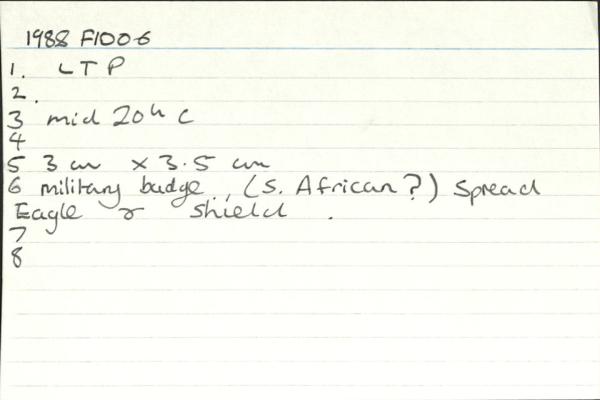 1988 F1006
1. LTP
2.
3 mid 20th C
4
5 3 cm x 3.5 cm
6 military badge, (S. African?) Spread
Eagle & Shield .
7
8